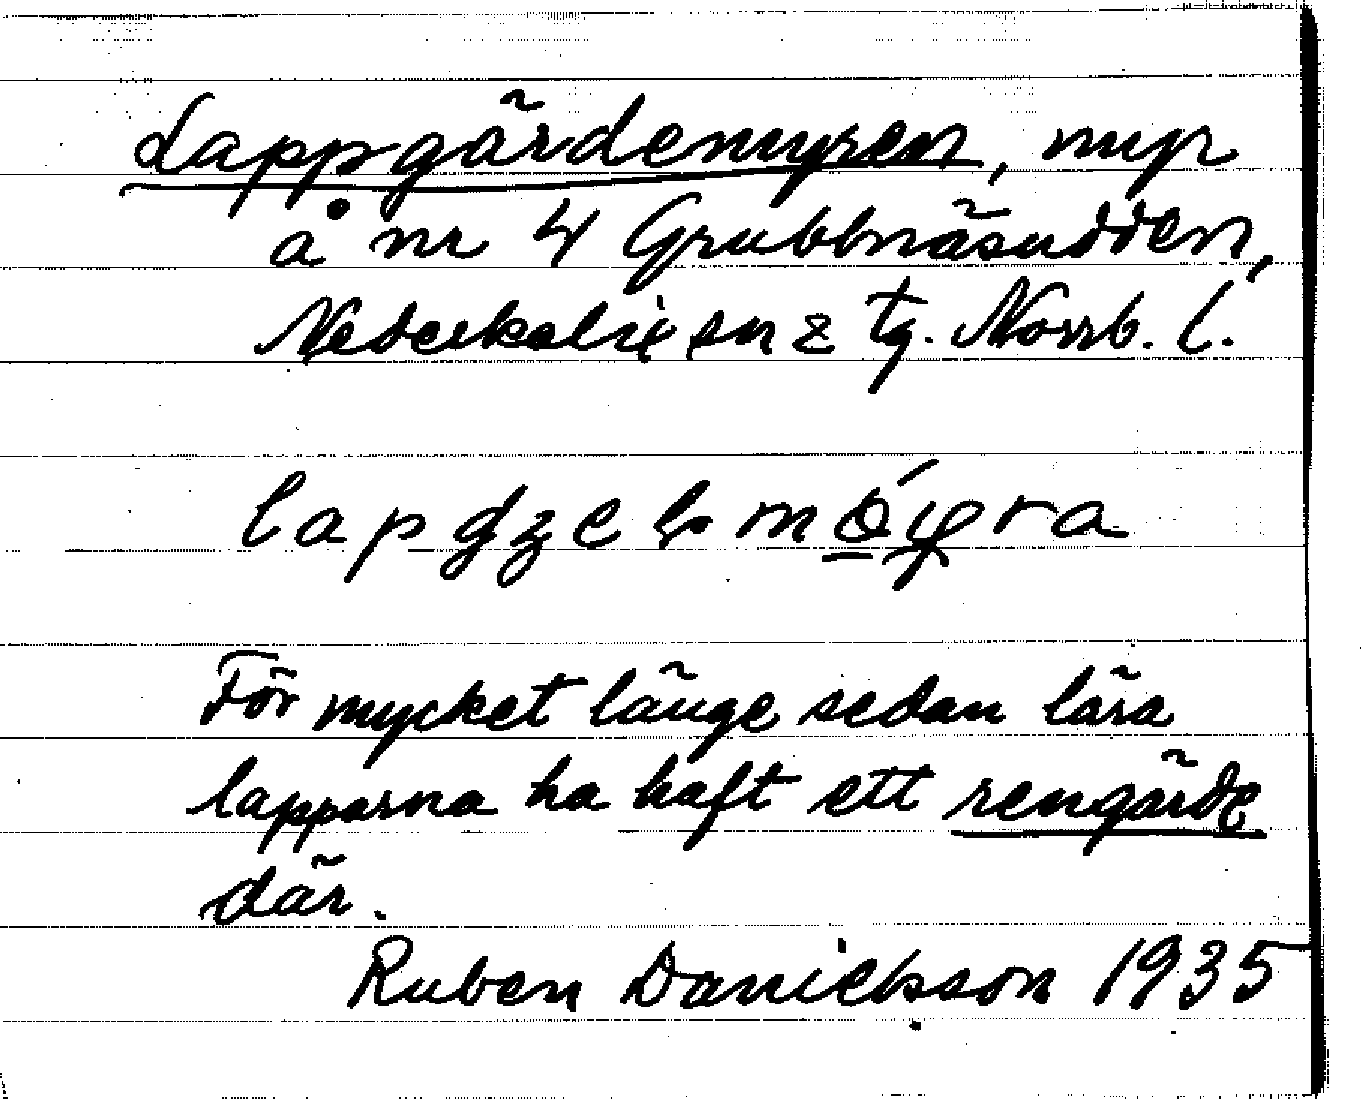 Lappgärdemyren, myr
å nr 4 Grubbnäsudden,
Nederkalix sn o tg. Norrb. l.
För mycket länge sedan lära
lapparna ha haft ett rengärde
där.
Ruben Danielsson 1935